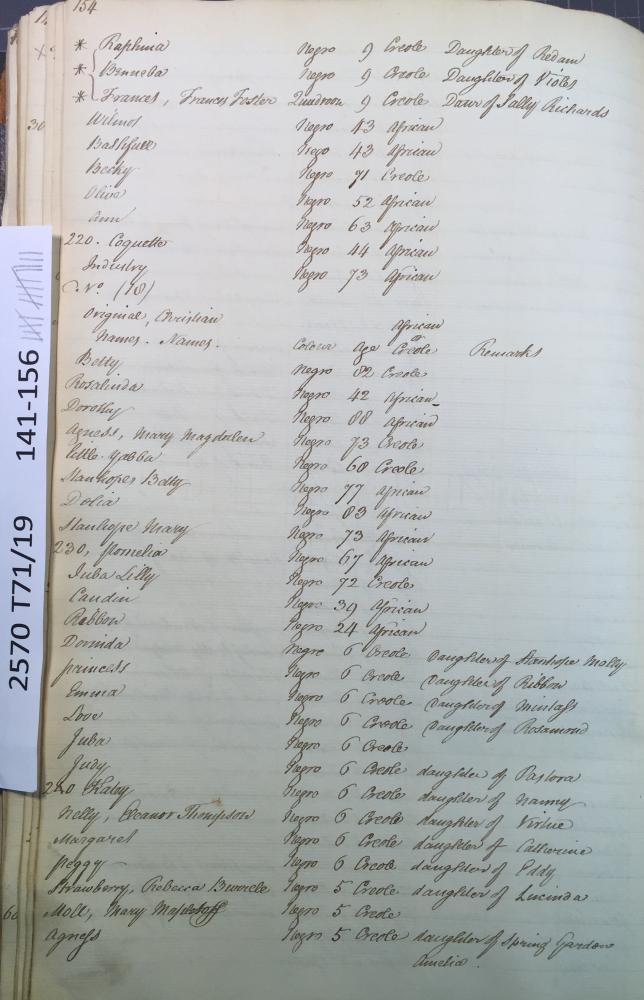 154
* Raphina Negro 9 Creole Daughter of Redam
* Benneba Negro 9 Creole Daughter of Violet
* Frances, Frances Foster Quadroon 9 Creole Daur of Sally Richards
30
Wilmot Negro 43 African
Bashfull Negro 43 African
Becky Negro 71 Creole
Olive Negro 52 African
Ann Negro 63 African
220. Coquette Negro 44 African
Industry Negro 73 African
No (18)
Original, Christian African
or
Names. Names. Colour Age Creole Remarks
Betty Negro 82 Creole
Rosalinda Negro 42 African
Dorothy Negro 88 African
Agness, Mary Magdalen Negro 73 Creole
little Yabba Negro 60 Creole
Stanhopes Betty Negro 77 African
Delia Negro 83 African
Stanhope Mary Negro 73 African
230, Pomelia Negro 67 African
Juba Lilly Negro 72 Creole
Caudin Negro 39 African
Ribbon Negro 24 African
Dorinda Negro 6 Creole Daughter of Stanhope Molly
Princess Negro 6 Creole Daughter of Ribbon
Emma Negro 6 Creole Daughter of
Love Negro 6 Creole Daughter of Rosamond
Juba Negro 6 Creole
Judy Negro 6 Creole daughter of Pastora
240 Katy Negro 6 Creole daughter of Nanny
Nelly, Eleanor Thompson Negro 6 Creole daughter of Virtue
Margaret Negro 6 Creole daughter of Catherine
Peggy Negro 6 Creole daughter of Eddy
Strawberry, Rebecca Negro 5 Creole daughter of Lucinda
60
Moll, Mary Negro 5 Creole
Agness Negro 5 Creole daughter of Spring Garden
Amelia.
2570 T71/19 141-156